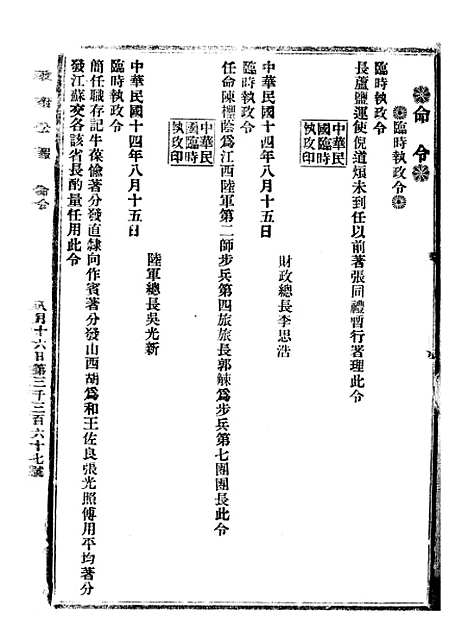 命令
臨時執政令
臨時執政令
長蘆鹽運使倪道烺未到任以前著張同禮暫行署理此令
中華民國臨時執政印
財政總長李思浩
中華民國十四年八月十五日
臨時執政令
任命陳禮蔭爲江西陸軍第二師步兵第四旅旅長郭觫爲步兵第七團團長此令
中華民國臨時執政印
陸軍總長吳光新
中華民國十四年八月十五日
臨時執政令
簡任職存記牛葆愉著分發直隸向作賓著分發山西胡爲和王佐良張光照傅用平均著分
發江蘇交各該省長酌量任用此令
政府公報 命令
八月十六日第三千三百六十七號